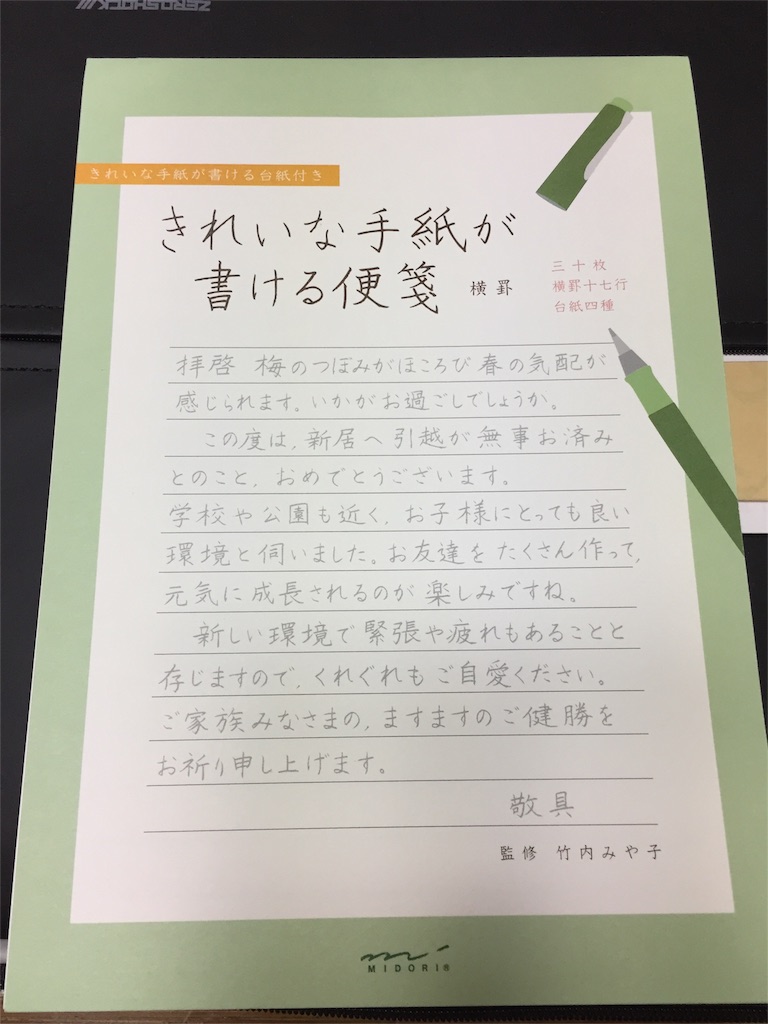 ZEROSHOCK
きれいな手紙が書ける台紙付き
きれいな手紙が
書ける便箋 横罫
三十枚
横罫十七行
台紙四種
拝啓 梅のつぼみがほころび春の気配が
感じられます。いかがお過ごしでしょうか。
この度は、新居へ引越が無事お済み
とのこと、おめでとうございます。
学校や公園も近く、お子様にとっても良い
環境と伺いました。お友達をたくさん作って、
元気に成長されるのが楽しみですね。
新しい環境で緊張や疲れもあることと
存じますので、くれぐれもご自愛ください。
ご家族みなさまの、ますますのご健勝を
お祈り申し上げます。
敬具
監修 竹内みや子
MIDORI®